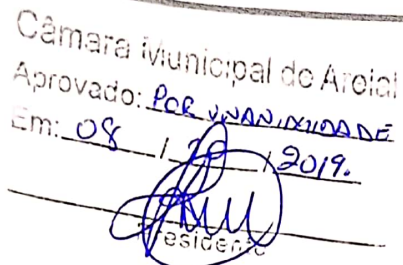 Câmara Municipal de Areial
Aprovado: POR UNANIMIDADE
Em: 08 / / 2019.
Presidente